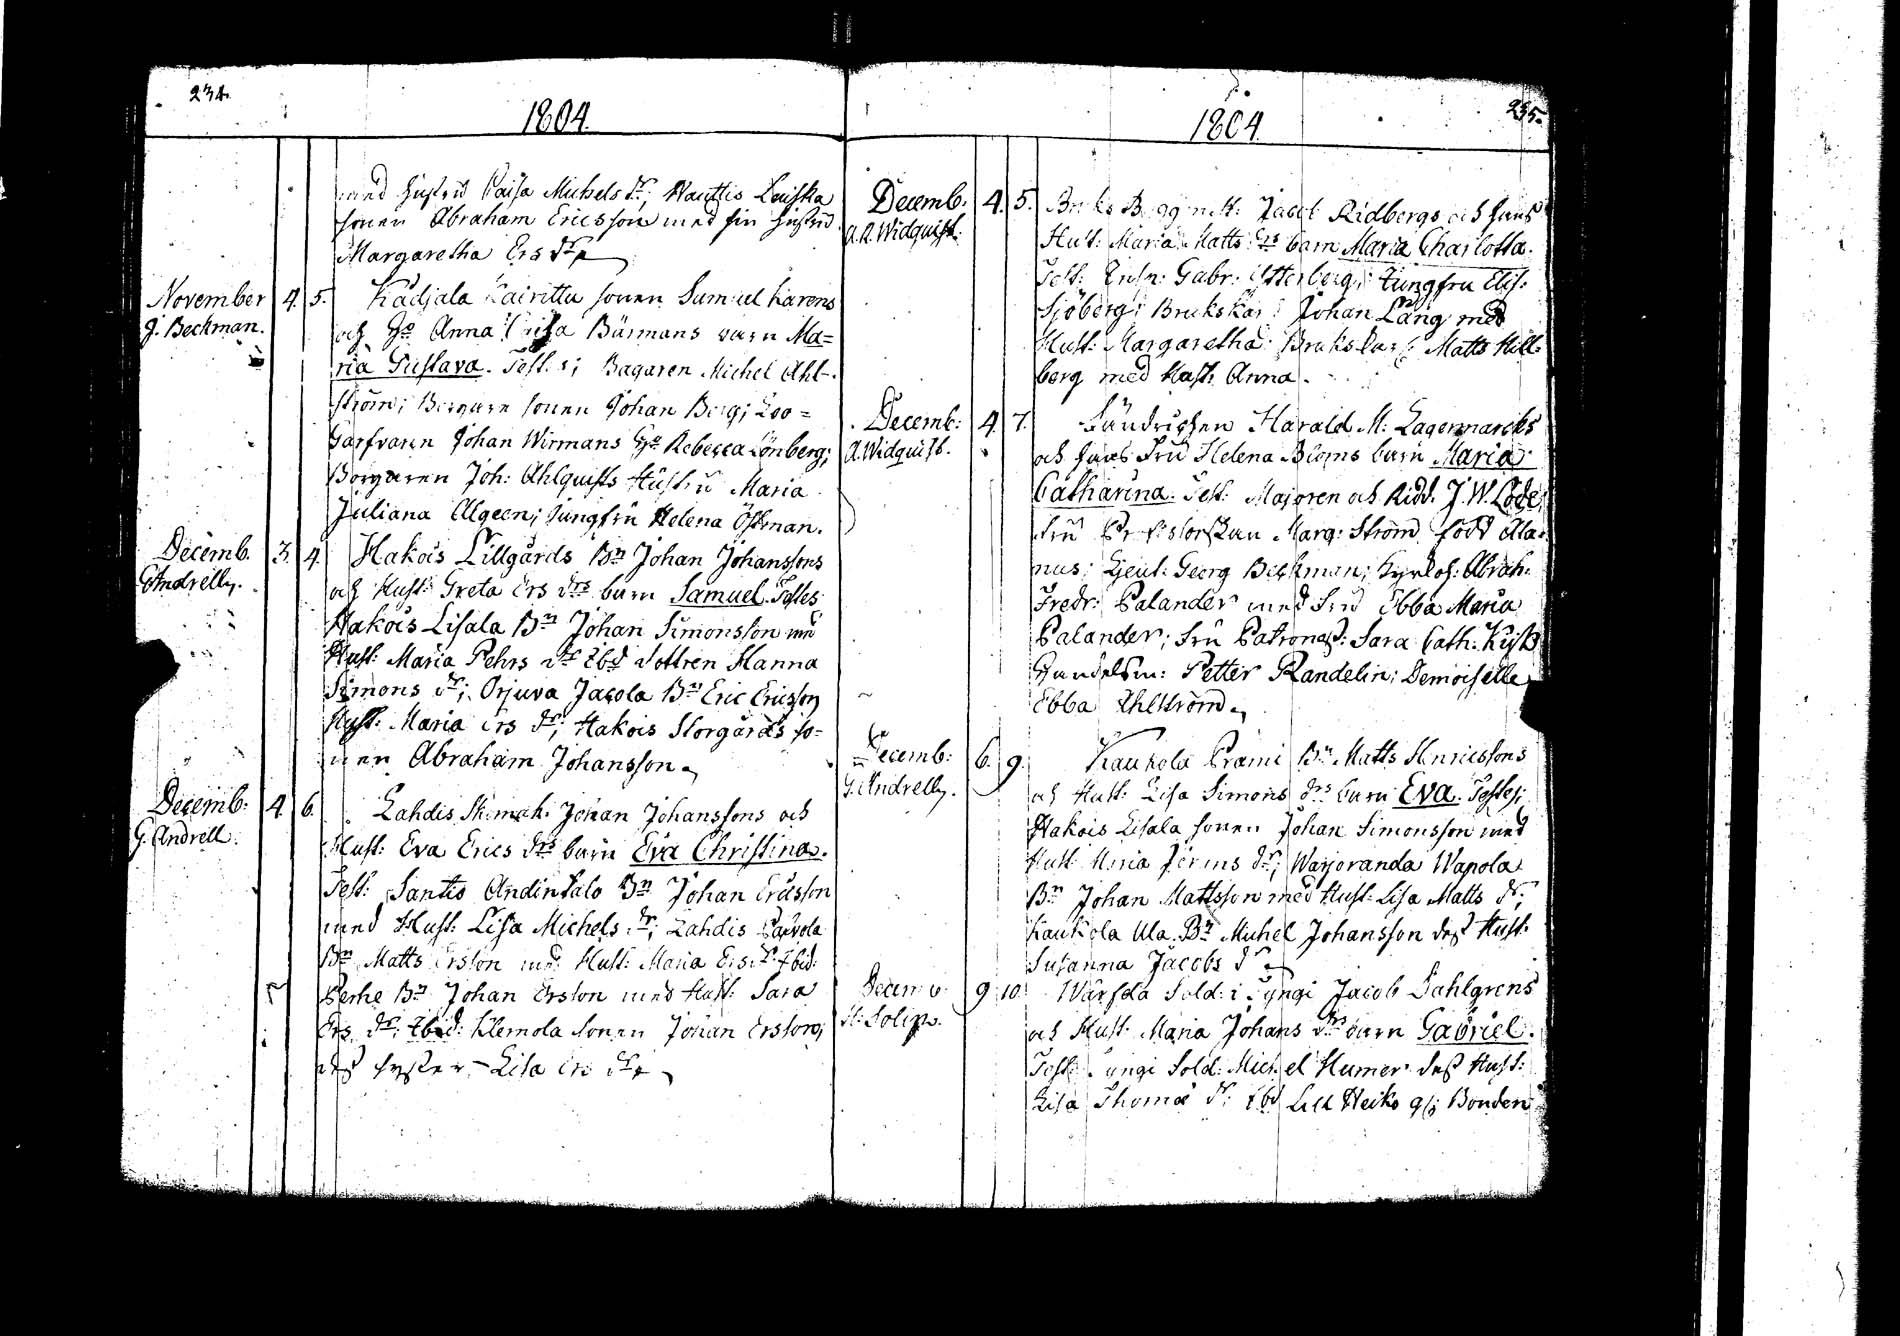 234.
1804.
med hustru Caisa Michels dr; Nauttis Leuska
sonen Abraham Ericsson med sin hustru
Margaretha Ers dr
November 4. 5. Kädjälä Kairittu sonen Samuel Karens
J. Beckman. och Hu Anna Caisa Bärmans barn Ma=
ria Gustava. Test:s; Bagaren Michel Ahl-
ström; Borgare sonen Johan Berg; Loo=
Garfvaren Johan Wirmans Hu Rebecca Lönberg;
Borgaren Joh: Ahlquists Hustru Maria
Juliana Algeen; Jungfru Helena Östman.
Decemb. 3. 4. Hakois Lillgårds Bn Johan Johanssons
G. Andrell. och Hust: Greta Ers drs barn Samuel. Testes
Hakois Lisala Bn Johan Simonsson med
Hust: Maria Pehrs dr Ibd dottren Hanna
Simons dr; Orjuva Jacola Bn Eric Ericsson
Hust: Maria Ers dr; Hakois Storgårds so=
nen Abraham Johansson
Decemb: 4. 6. Lahdis Skomak: Johan Johanssons och
G. Andrell. Hust: Eva Erics drs barn Eva Christina.
Test: Santio Andintalo Bn Johan Ericsson
med Hust: Lisa Michels dr; Lahdis Parvola
Bn Matts Ersson med Hust: Maria Ers dr Ibid:
Perhe Bn Johan Ersson med Hust: Sara
Ers dr; Ibid: Klemola sonen Johan Ersson;
dess syster Lisa Ers dr
235.
1804.
Decemb. 4. 5. Bruks Byggmest: Jacob Ridbergs och hans
A. R. Widquist. Hust: Maria Matts drs barn Maria Charlotta.
Test: Insp: Gabr: Österberg; Jungfru Elis:
Sjöberg; Bruks Kar: Johan Lång med
Hust: Margaretha; Brukskarl: Matts Hell=
berg med Hust: Anna.
Decemb: 4. 7. Fändrichen Harald M: Lagermarcks
A. Widquist. och hans Fru Helena Bloms barn Maria
Catharina. Test: Majoren och Ridd. J. W. Lode;
Fru Marg: Ström född Ala=
nus; Ljeut: Georg Beckman; Kyrkoh: Abrah:
Fredr: Palander med Fru Ebba Maria
Palander; Fru Patroness: Sara Cath:
Handelsm: Petter Randelin; Demoiselle
Ebba Ahlström
Decemb: 6. 9. Kaukola Prami Bn Matts Henricssons
G. Andrell. och Hust: Lisa Simons drs barn Eva. Testes;
Hakois Lisala sonen Johan Simonsson med
Hust: Maria Jörens dr; Warjoranda Wapola
Bn Johan Mattsson med Hust: Lisa Matts dr;
Kaukola Ula Bn Michel Johansson dess Hust:
Susanna Jacobs dr
Decemb: 9 10. Wårfda Sold: i Syngi Jacob Dahlgrens
och Hust: Maria Johans drs barn Gabriel.
Test: Syngi Sold: Michel Humer dess Hust:
Lisa Thomæ dr; Ibd Lill Heiko Bonden